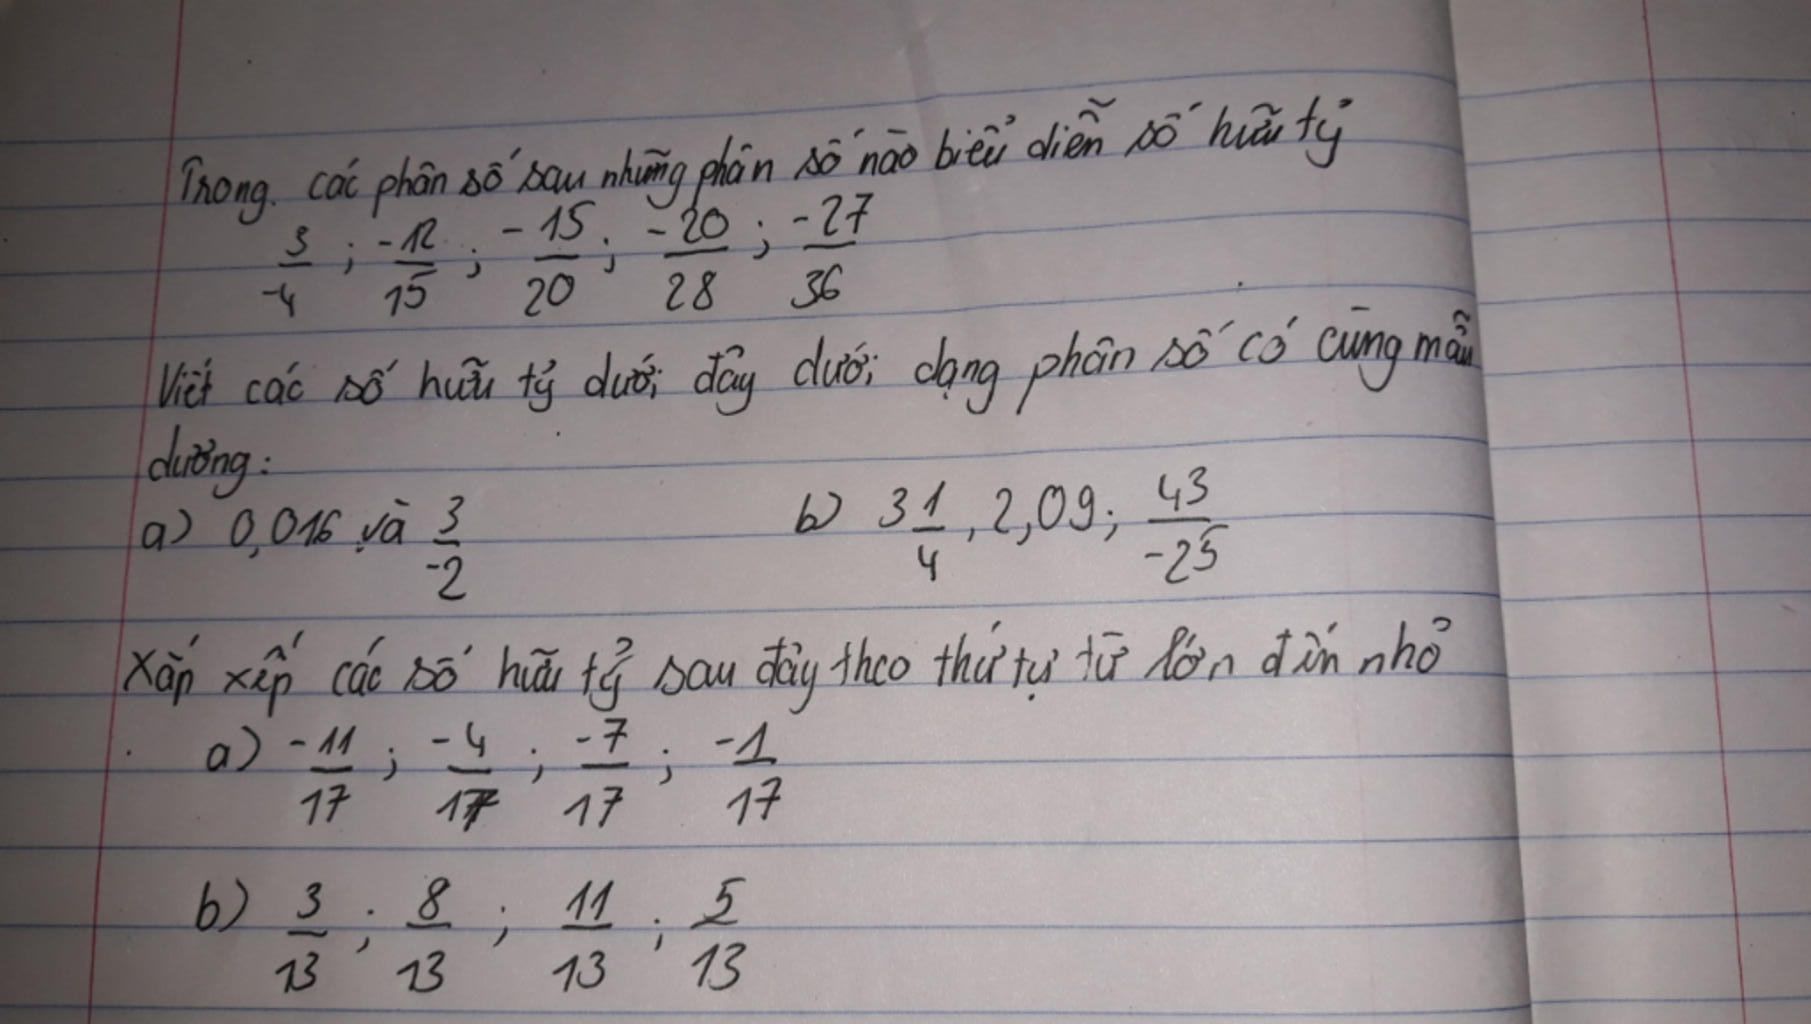 Trong. các phân số sau những phân số nào biểu diễn số hữu tỷ
3/-4 ; -12/15 ; -15/20 ; -20/28 ; -27/36
Viết các số hữu tỷ dưới đây dưới dạng phân số có cùng mẫu
dương:
a) 0,016 và 3/-2 b) 3 1/4 , 2,09 ; 43/-25
Xắp xếp các số hữu tỷ sau đây theo thứ tự từ lớn đến nhỏ
a) -11/17 ; -4/17 ; -7/17 ; -1/17
b) 3/13 ; 8/13 ; 11/13 ; 5/13